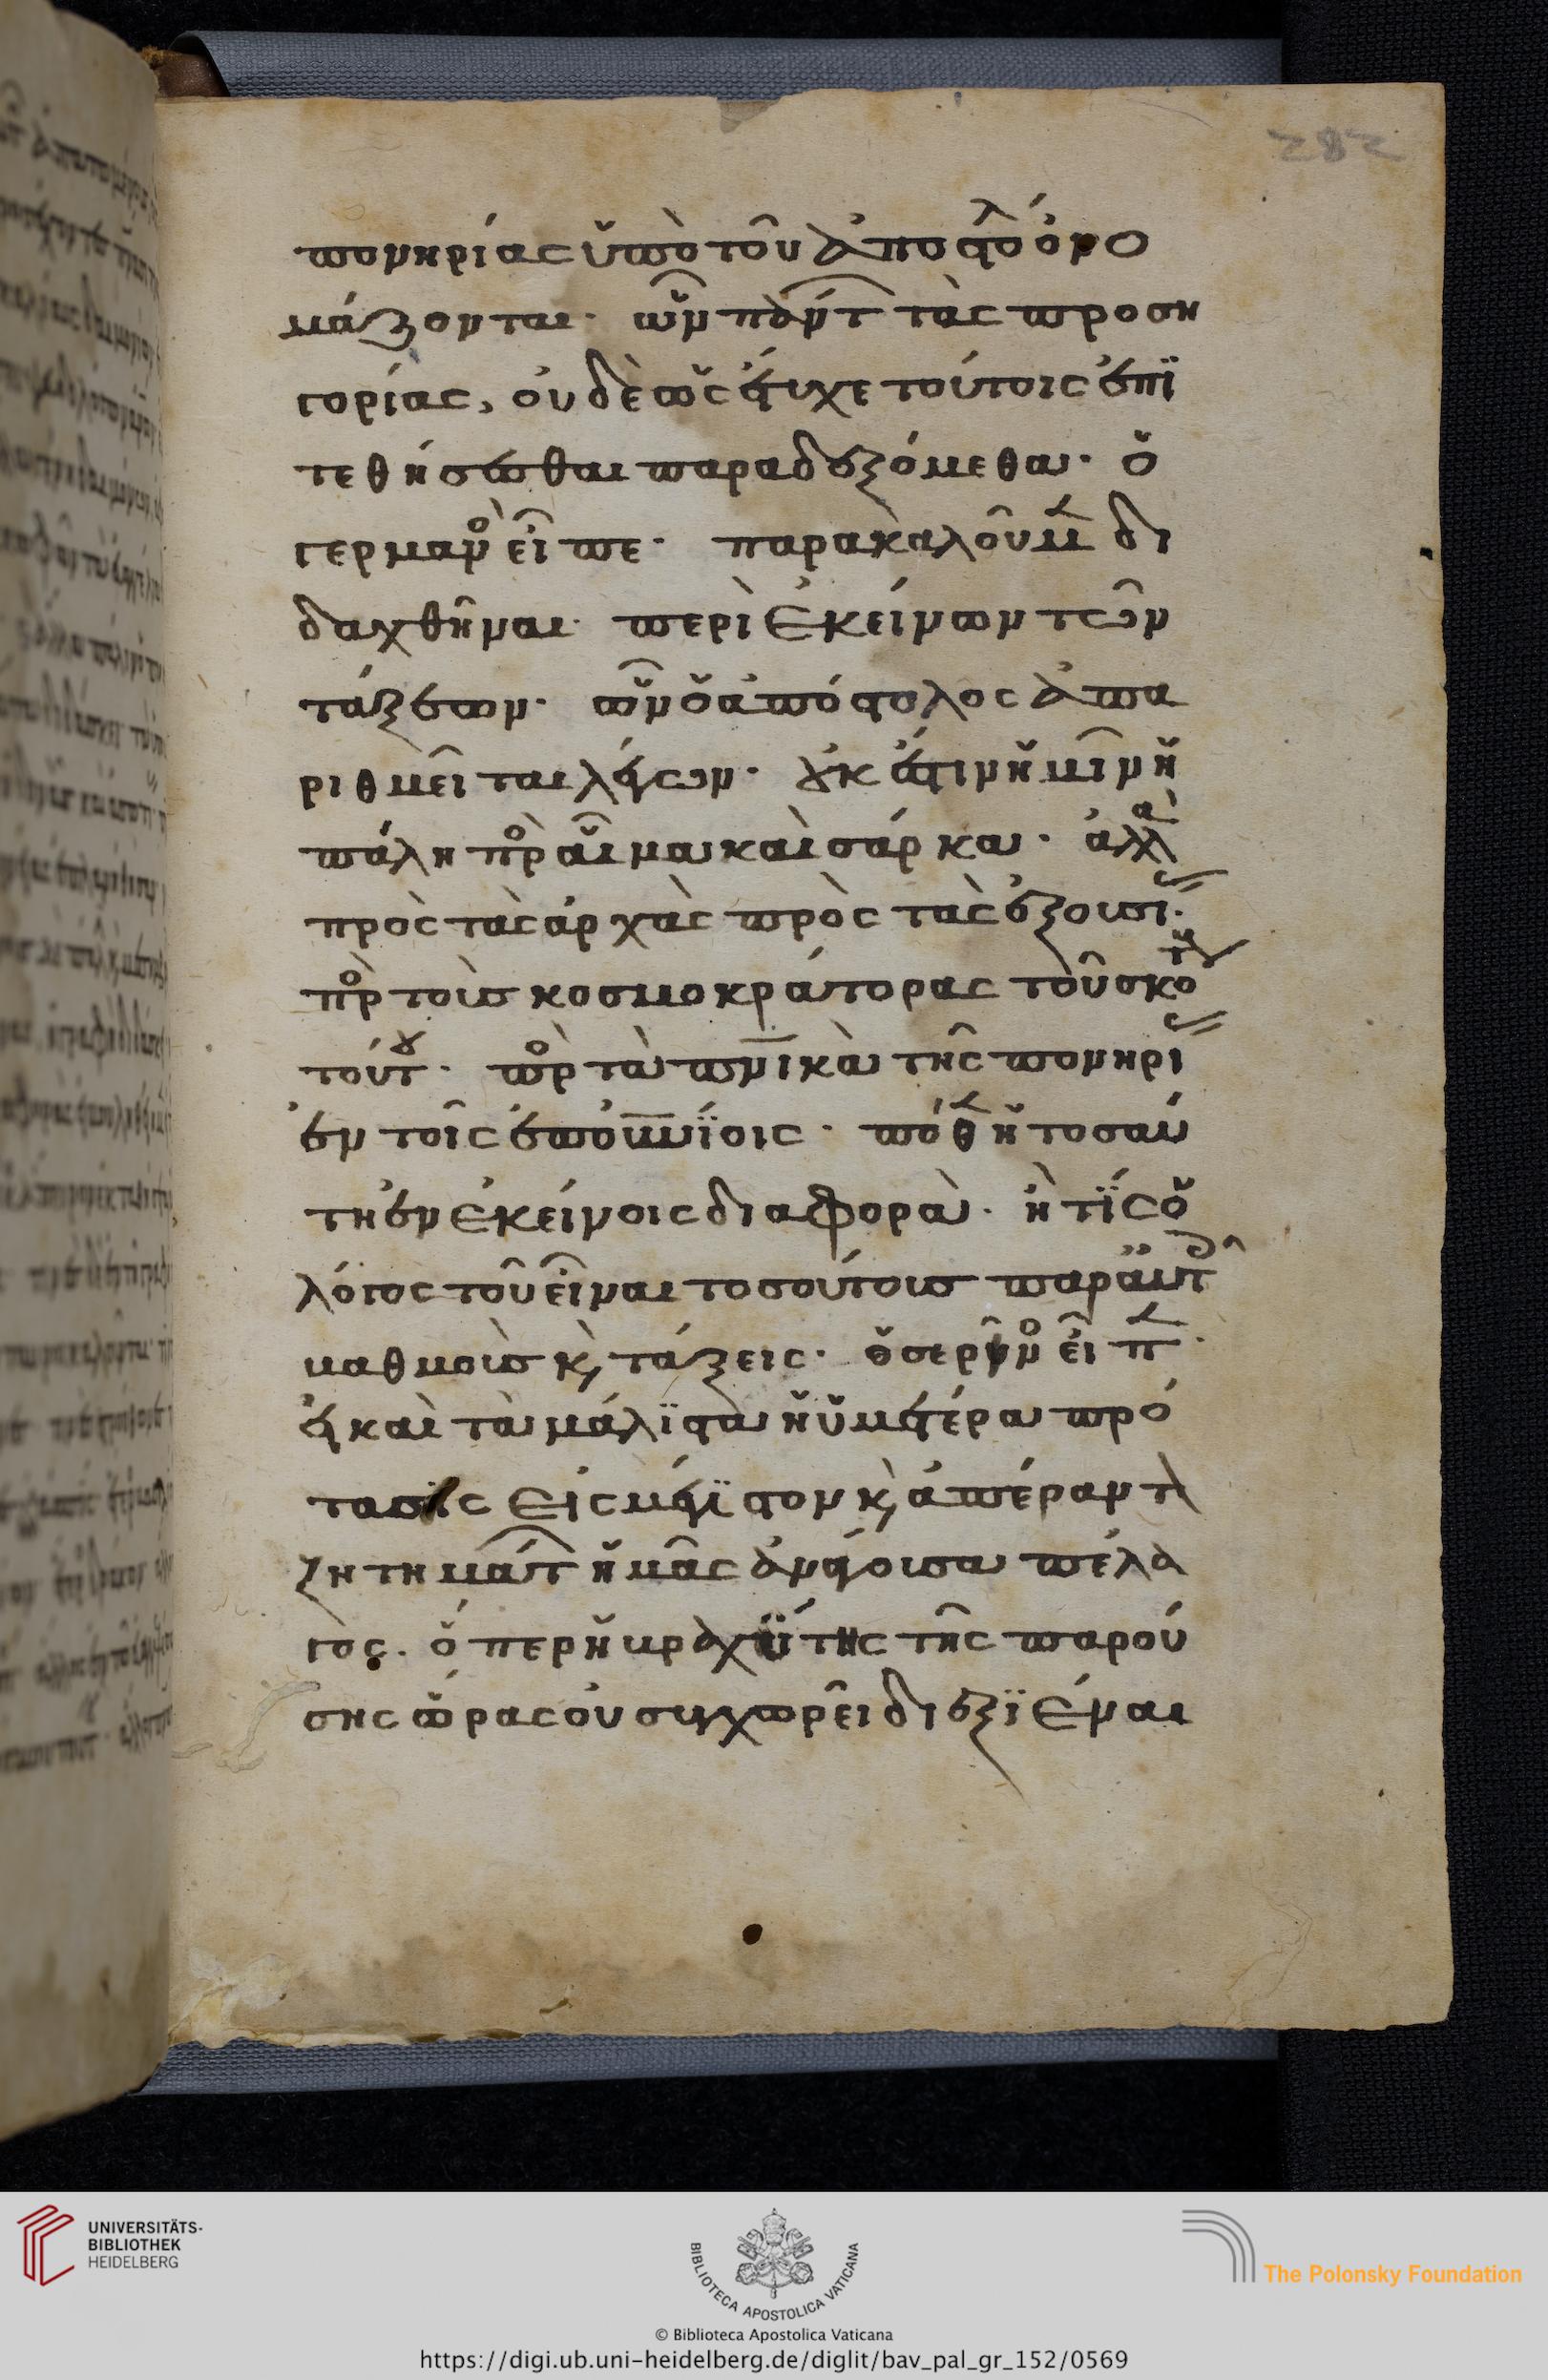 282
πονηρίας ὑπὸ τοῦ ἀποστόλ ὀνο
μάζονται· ὧν πάντ τὰς προση
γορίας, οὐδὲ ὡς ἔτυχε τούτοις ἐπϊ
τεθήσωθαι παραδεξόμεθα· ὁ
γερμανὸ εἶπε· παρακαλοῦμ δι
δαχθῆναι περὶ ἐκείνων τῶν
τάξεων· ὧν ὁ ἀπόστολος ἀπα
ριθμεῖται λέγων· οὐκ ἔστιν ἡμῖν ἡ
πάλη πρὸ αἷμα καὶ σάρκα· ἀλλὰ
πρὸς τὰς ἀρχὰς πρὸς τὰς ἐξουσί·
πρὸ τοὺς κοσμοκράτορας τοῦ σκότ
τούτου· πρὸ τὰ πνικὰ τῆς πονηρί
ἐν τοῖς ἐπουνίοις· πόθ ἡ τοσαύ
τη ἐν ἐκείνοις διαφορὰ· ἢ τίς ὁ
λόγος τοῦ εἶναι τοσούτους παρ αὐτ
βαθμοὺς κ τάξεις· ὁ σερῆνο εἶπ·
εἰ καὶ τὰ μάλϊστα ἡ ὑμετέρα πρό
τασϊς εἰς μέγϊστον κ ἀπέραντ
ζητημάτ ἡμᾶς ἀνάγουσα πέλα
γος. ὅπερ ἡ βραχύτης τῆς παρού
σης ὥρας οὐ συγχωρεῖ διεξϊέναι
UNIVERSITÄTS-
BIBLIOTHEK
HEIDELBERG
BIBLIOTECA APOSTOLICA VATICANA
The Polonsky Foundation
© Biblioteca Apostolica Vaticana
https://digi.ub.uni-heidelberg.de/diglit/bav_pal_gr_152/0569